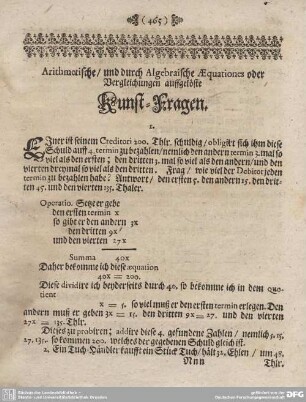 (465)
Arithmetische/ und durch Algebraische Æquationes oder
Vergleichungen auffgelöste
Kunst-Fragen.
1.
EIner ist seinem Creditori 200. Thlr. schuldig/ obligirt sich ihm diese
Schuld auff 4. termin zu bezahlen/ nemlich den andern termin 3. mal so
viel als den ersten; den dritten 3. mal so viel als den andern/ und den
vierdten dreymal so viel als den dritten. Frag/ wie viel der Debitor jeden
termin zu bezahlen habe? Antwort/ den ersten 5. den andern 15. den drit-
ten 45. und den vierten 135. Thaler.
Operatio. Setzt er gebe
den ersten termin x
so gibt er den andern 3x
den dritten 9x
und den vierten 27x
Summa 40x
Daher bekomme ich diese æquation
40x = 200.
Diese dividire ich beyderseits durch 40. so bekomme ich in dem Quo-
tient
x = 5. so viel muß er den ersten termin erlegen. Den
andern muß er geben 3x = 15. den dritten 9x = 27. und den vierten
27x = 135. Thlr.
Dieses zu probirn; addire diese 4. gefundene Zahlen/ nemlich 5. 15.
27. 135. so kommen 200. welches der gegebenen Schuld gleich ist.
2. Ein Tuch-Händler kaufft ein Stück Tuch/ hält 32. Ehlen/ um 48.
Nnn Thlr.